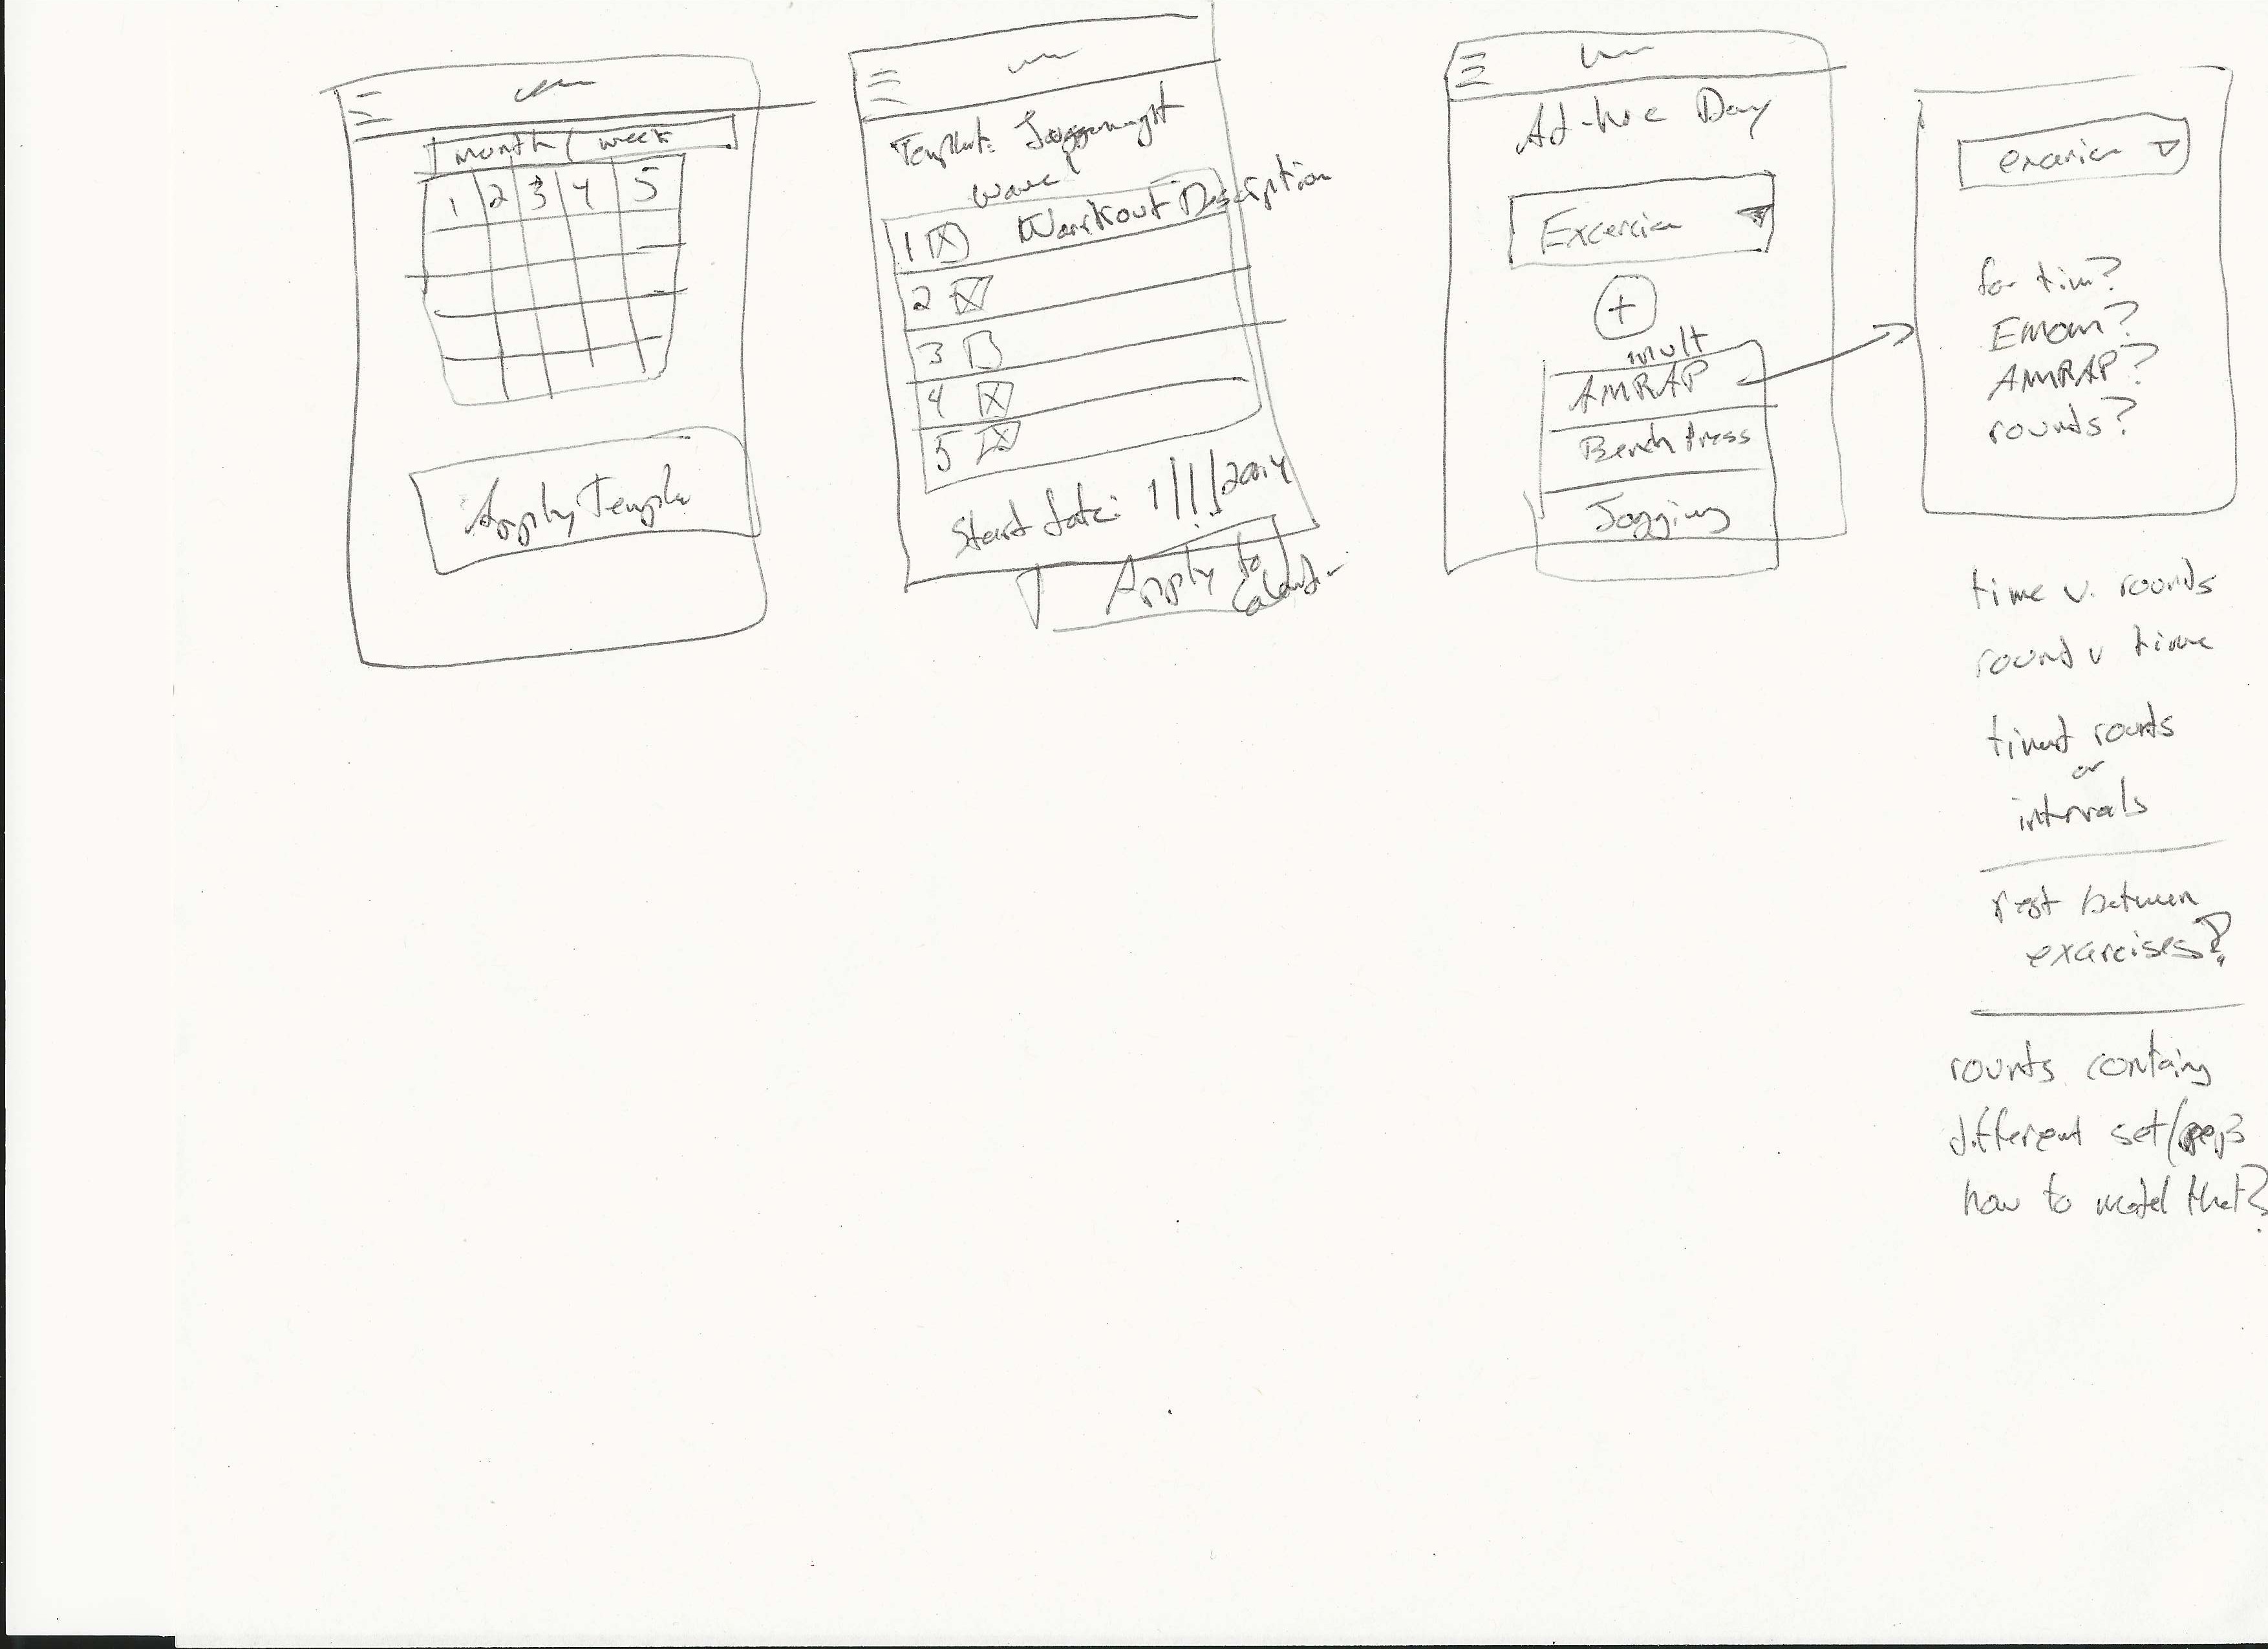 month / week
1 2 3 4 5
Apply Templ
Template: Juggernaught
wave 1
1 Workout Description
2
3
4
5
Start date: 1/1/2014
Apply to
Ad-hoc Day
+
mult
AMRAP
Bench Press
Jogging
for tim?
Emom?
AMRAP?
rounds?
time v. rounds
round v time
timed rounds
or
intervals
rest between
exercises?
rounds containg
different set/reps
how to model that?